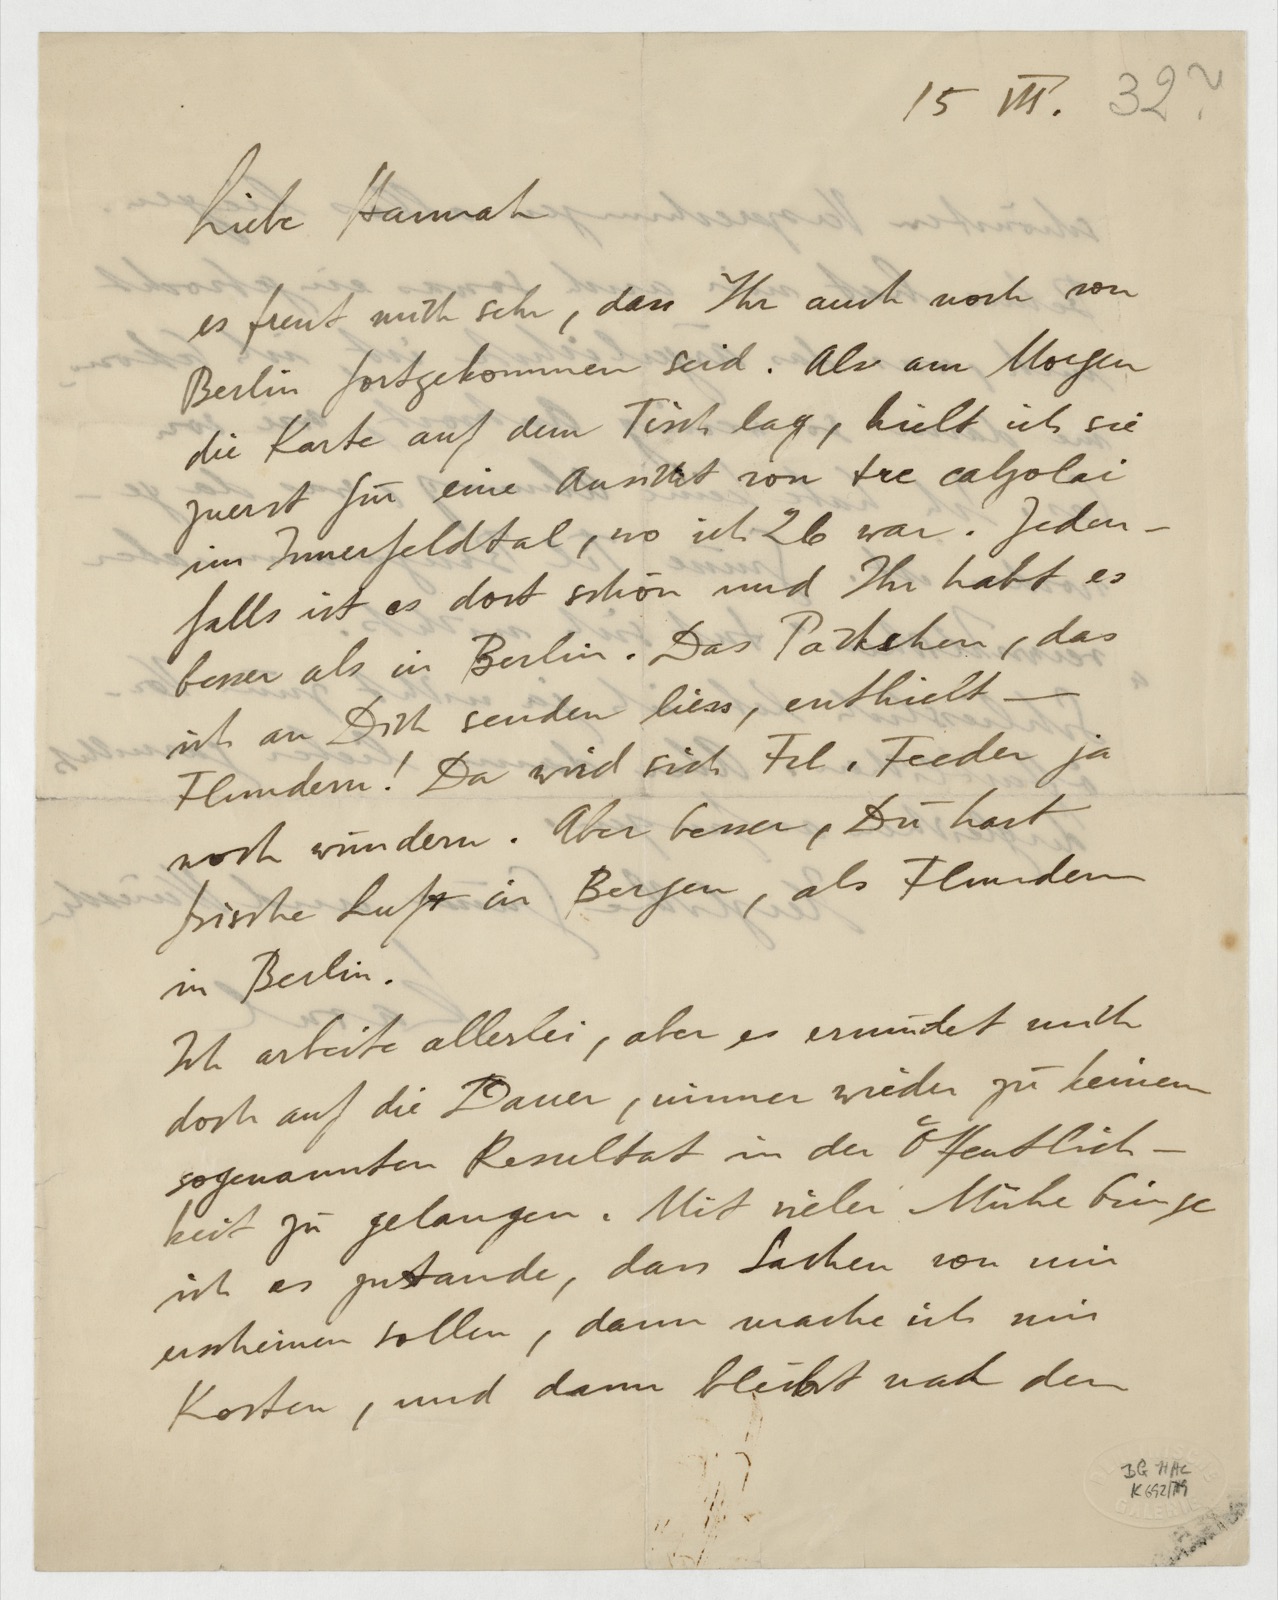 15 VIII. 32?
Liebe Hannah
es freut mich sehr, dass Ihr auch noch von
Berlin fortgekommen seid. Als am Morgen
die Karte auf dem Tisch lag, hielt ich sie
zuerst für eine Ansicht von tre calzolai
im Innerfeldtal, wo ich 26 war. Jeden-
falls ist es dort schön und Ihr habt es
besser als in Berlin. Das Päckchen, das
ich an Dich senden liess, enthielt —
Flundern! Da wird sich Frl. Feeder ja
noch wundern. Aber besser, Du hast
frische Luft in Bergen, als Flundern
in Berlin.
Ich arbeite allerlei, aber es ermüdet mich
doch auf die Dauer, immer wieder zu keinem
sogenannten Resultat in der Öffentlich-
keit zu gelangen. Mit vieler Mühe bringe
ich es zustande, dass Sachen von mir
erscheinen sollen, dann mache ich mir
Kosten, und dann bleibt nach den
BG HHC
K 692/79